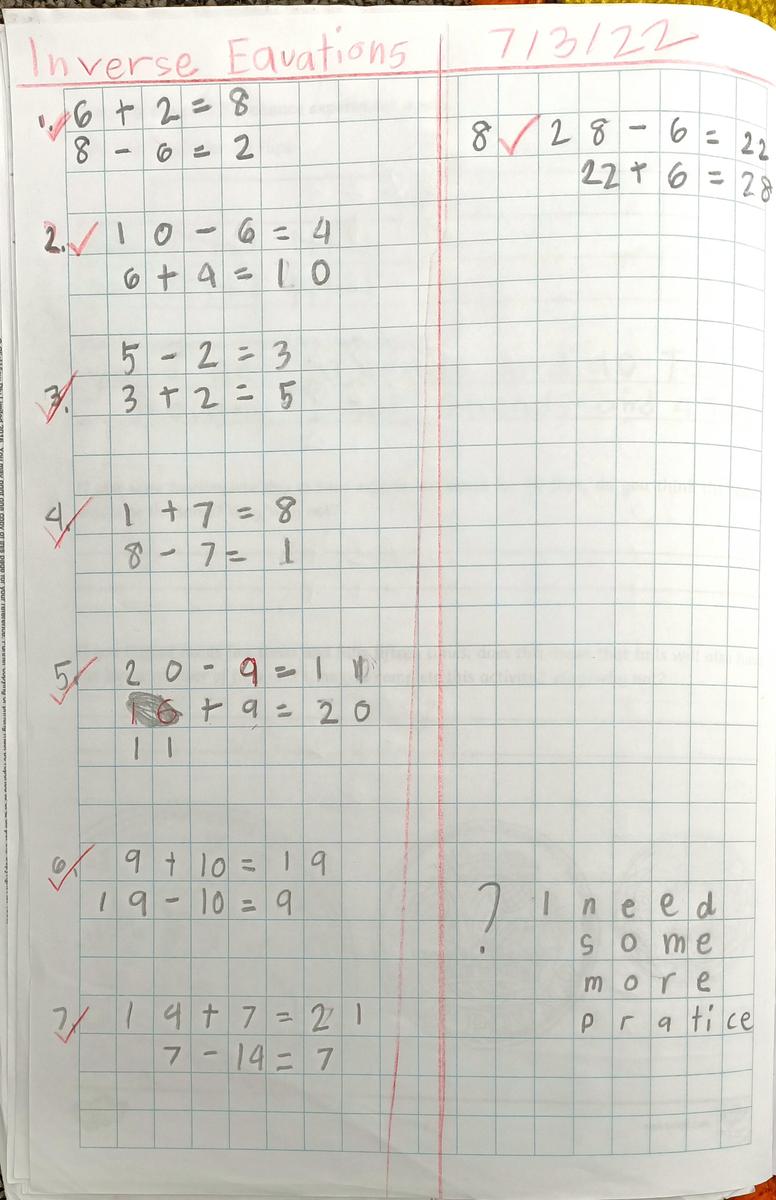 Inverse Equations
7/3/22
1. 6 + 2 = 8
8 - 6 = 2
2. 10 - 6 = 4
6 + 4 = 10
5 - 2 = 3
3. 3 + 2 = 5
4. 1 + 7 = 8
8 - 7 = 1
5. 20 - 9 = 11
16 + 9 = 20
11
6. 9 + 10 = 19
19 - 10 = 9
7. 14 + 7 = 21
7 - 14 = 7
8 28 - 6 = 22
22 + 6 = 28
? I need
some
more
pratice